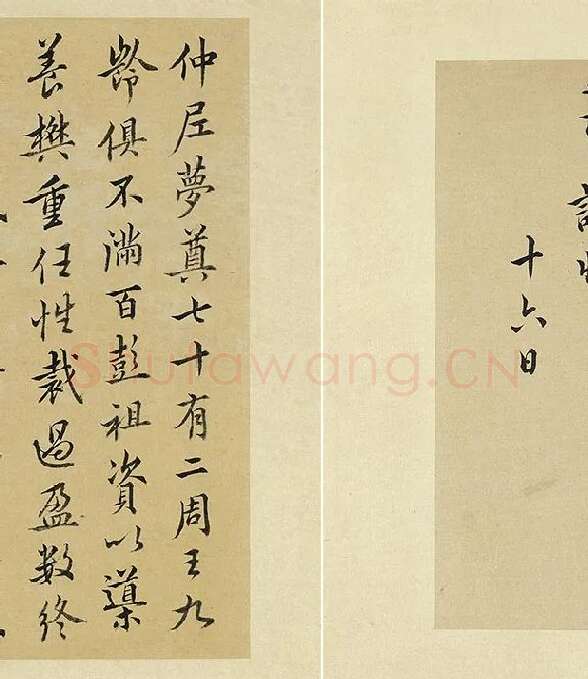 十六日
仲尼夢奠七十有二周王九
齡俱不滿百彭祖資以導
養樊重任性裁過盈數終
Shufawang.CN